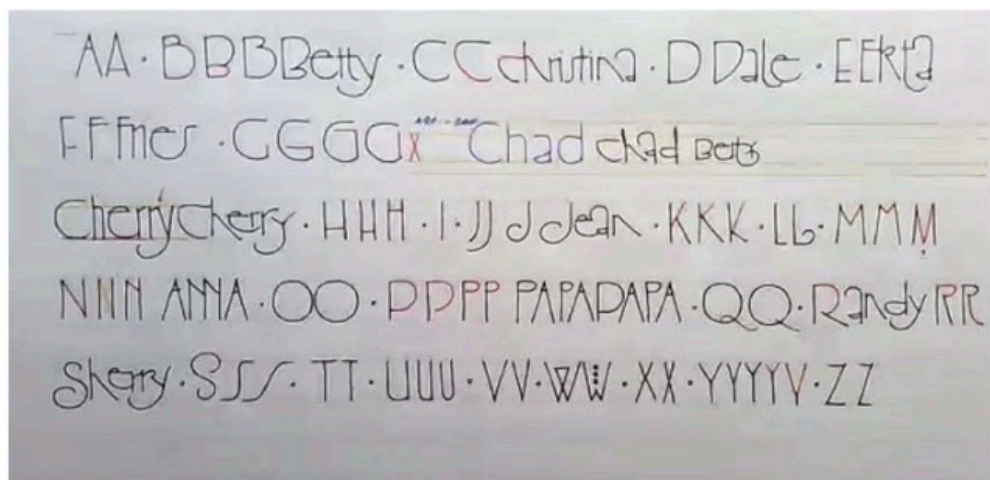 AA · BBBBetty · CCchristina · DDale · EEkta
FFFfner · GGGGx Chad chad Bets
CherryCherry · HHH · I · JJJJean · KKK · LL · MMM
NNN ANNA · OO · PPPP PAPAPAPA · QQ · RandyRR
Sherry · SSS · TT · UUU · VV · WW · XX · YYYYY · ZZ